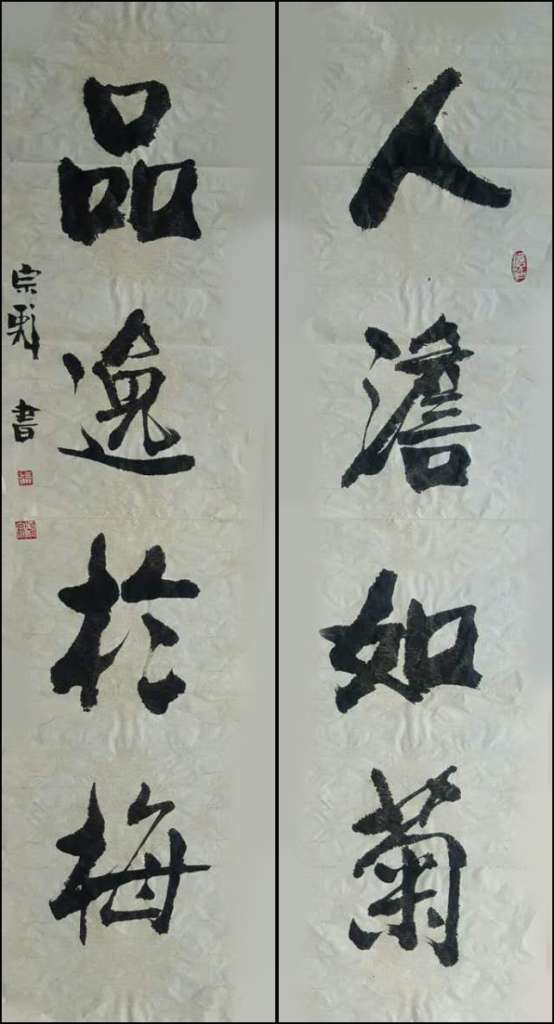 人澹如菊
品逸於梅
宗彩 書